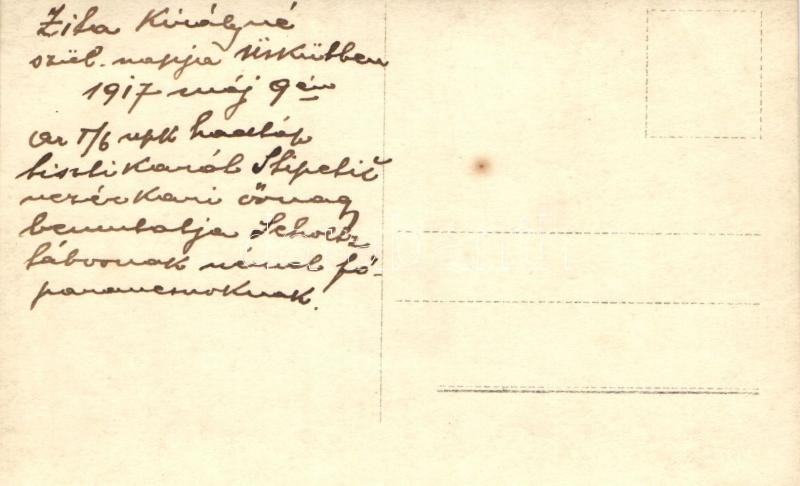 Zita Királyné
szül. napja Üskübben
1917 máj 9én
az I/6 npk hadtáp
tisztikarát Stipetić
vezérkari őrnagy
bemutatja Scholtz
tábornak német fő-
parancsnoknak.